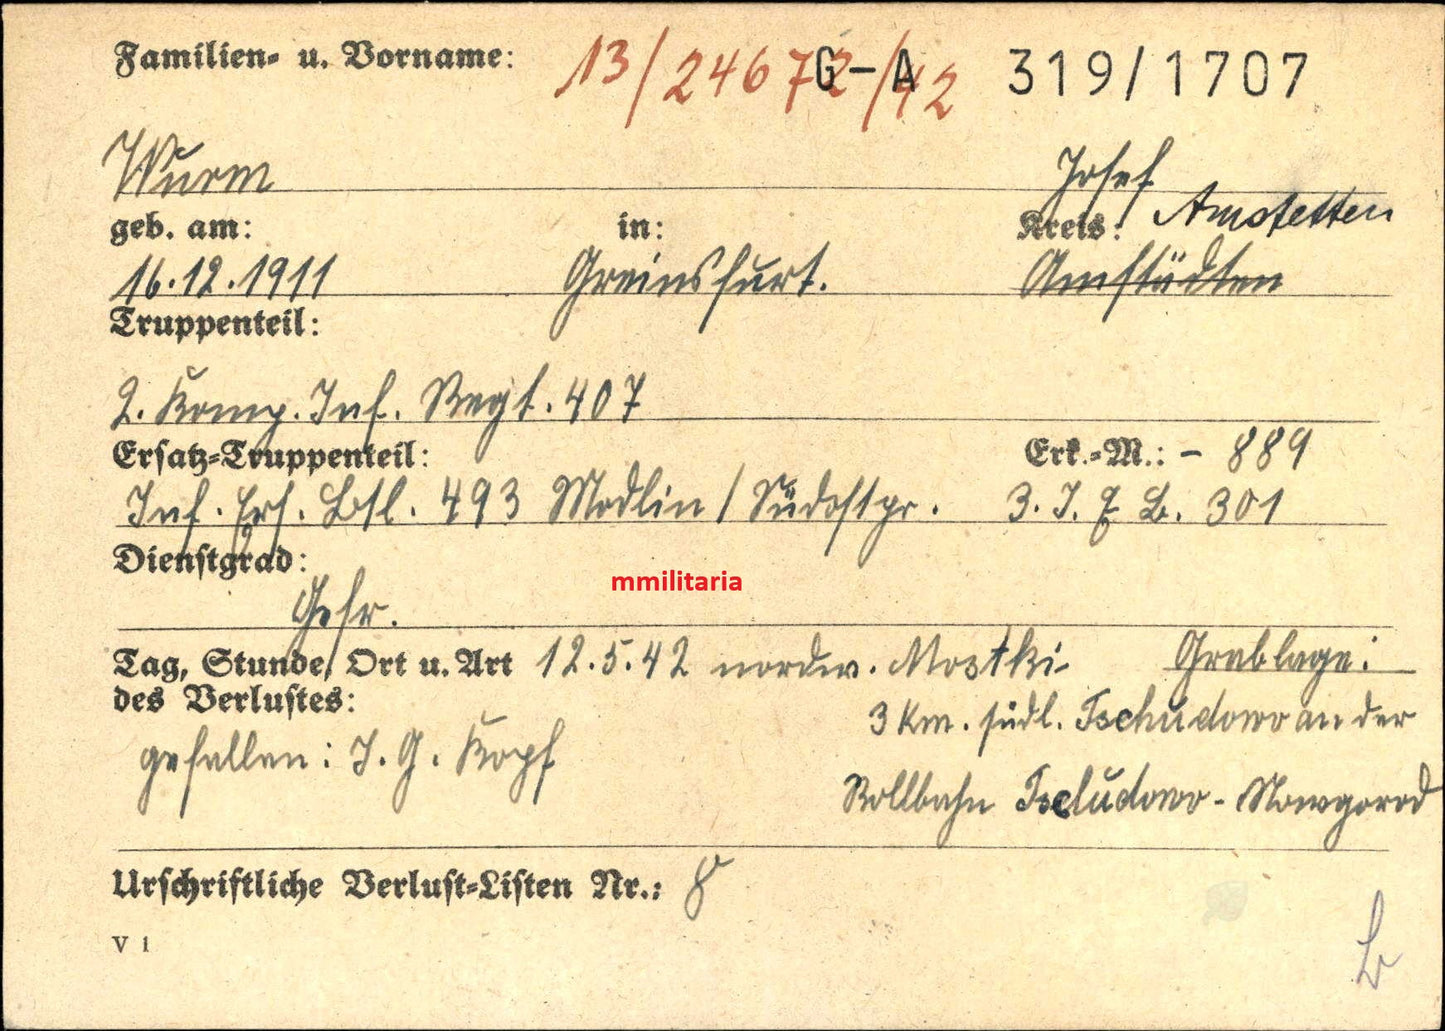 Familien- u. Vorname: 13/24672/42 G-A 319/1707
Wurm Josef
geb. am: in: Kreis: Amstetten
16.12.1911 Greinsfurt. Amstädten
Truppenteil:
2. Komp. Inf. Regt. 407
Ersatz-Truppenteil: Erk.-M.: - 889
Inf. Ers. Btl. 493 Modlin / Südostpr. 3. I. E. B. 301
Dienstgrad:
Gefr.
mmilitaria
Tag, Stunde, Ort u. Art 12.5.42 nordw. Mostki Grablage:
des Verlustes: 3 km. südl. Tschudowo an der
gefallen: I. G. Kopf
Rollbahn Tschudowo - Nowgorod
Urschriftliche Verlust-Listen Nr.: 8
V 1